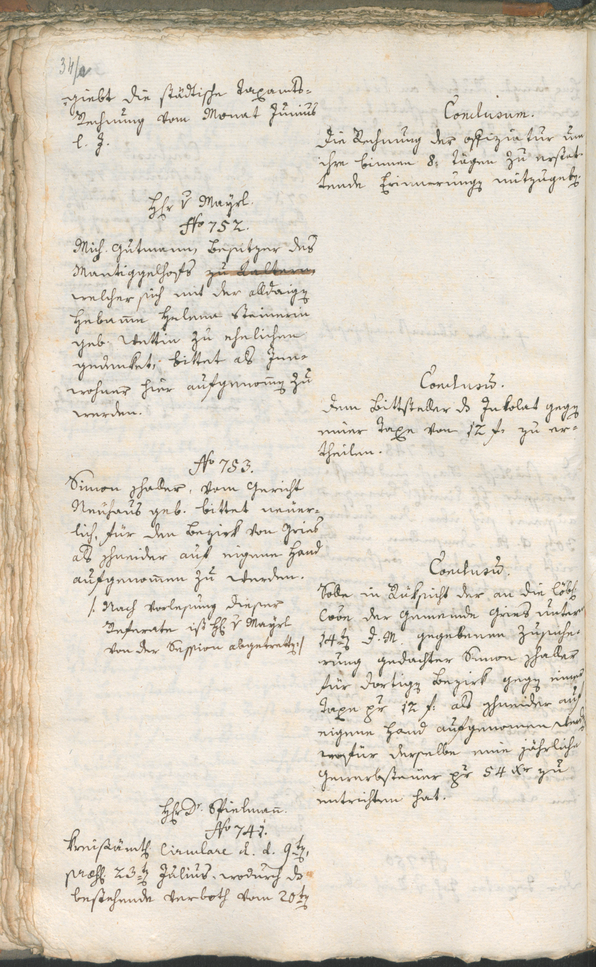 giebt die städtische Taxamts=
Rechnung vom Monat Junius
l. J.
Conclusum.
Die Rechnung der offiziatur um
ihre binnen 8: tägen zu erstat=
tende Erinnerung mitzugeben.
Hhr v Mayrl.
No 752.
Mich. Gutmann, besitzer des
zu Kaltern
welcher sich mit der alldaigen
Hebamme Helena Steinerin
geb. zu ehelichen
gedenket; bittet als Inn=
wohner hier aufgenommen zu
werden.
Conclusum.
dem Bittsteller das Inkolat gegen
einer Taxe von 12 f. zu er=
theilen.
No 753.
Simon Haller, vom Gericht
Neuhaus geb. bittet neuer=
lich, für den Bezirk von Gries
als schneider auf eigene Hand
aufgenommen zu werden.
/: Nach vorlesung dieser
Referate ist Hhr v Mayrl
von der Session abgetretten :/
Conclusum.
Solle in Rüksicht der an die löbl.
der Gemeinde Gries unter
14ten d. M. gegebenen Zusiche=
rung gedachter Simon Haller
für dortigen Bezirk gegen einer
Taxe pr 12 f. als schneider auf
eigene Hand aufgenommen werden
wofür derselbe eine jährliche
Gewerbsteuer pr 54 Xr zu
entrichten hat.
Hhr Dr. Spielmann.
No 741.
Kreisämtl. Circulare d. d. 9ten,
präs. 23ten Julius, wodurch das
bestehende verboth vom 20ten